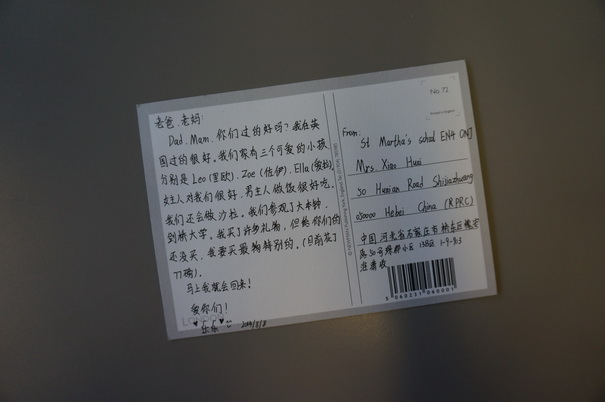 老爸、老妈:
Dad、Mam、你们过的好吗？我在英
国过的很好。我们家有三个可爱的小孩
分别是 Leo(里欧)、Zoe (佐伊)、Ella(爱拉)
女主人对我们很好，男主人做饭很好吃。
我们还会做沙拉。我们参观了大本钟、
剑桥大学。我买了许多礼物，但给你们的
还没买，我要买最独特别的。(目前花了
77磅)。
马上我就会回来！
爱你们！
♥乐乐♥ 2014/8/8
No. 72
From:
St Martha's school EN4 0NJ
Mrs Xiao Huai
50 Huaian Road Shijiazhuang
050000 Hebei China (P.R.C)
中国河北省石家庄市桥东区槐安
路50号 小区 13B区 1-9-
收
5 060231 060001